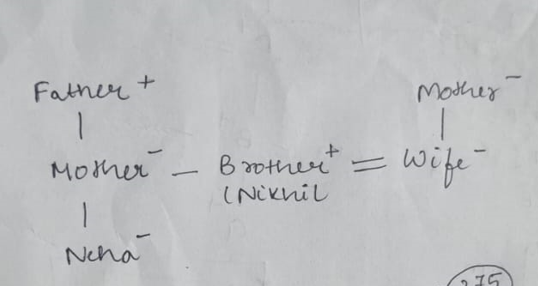 Father + Mother -
Mother - — Brother + = Wife -
(Nikhil
Neha -
275